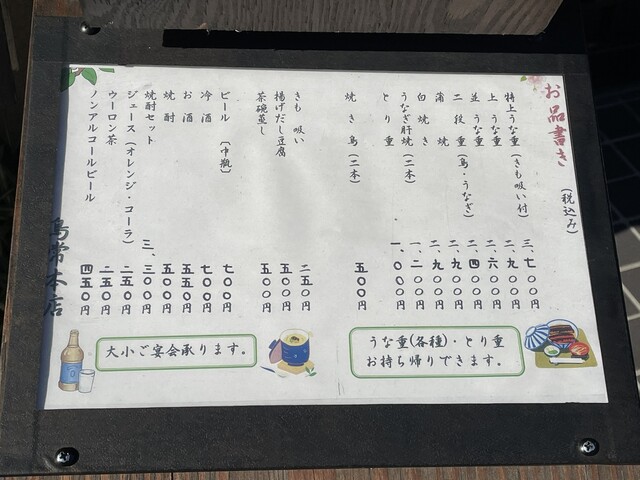 お品書き
(税込み)
特上うな重(きも吸い付) 三、七〇〇円
上うな重 二、九〇〇円
並うな重 二、六〇〇円
二段重(鳥・うなぎ) 二、四〇〇円
蒲焼 二、九〇〇円
白焼き 二、九〇〇円
うなぎ肝焼(二本) 一、二〇〇円
とり重 一、〇〇〇円
焼き鳥(二本) 五〇〇円
きも吸い 二五〇円
揚げだし豆腐 五〇〇円
茶碗蒸し 五〇〇円
ビール(中瓶) 七〇〇円
冷酒 七〇〇円
お酒 五五〇円
焼酎 五〇〇円
焼酎セット 三、三〇〇円
ジュース(オレンジ・コーラ) 二五〇円
ウーロン茶 二五〇円
ノンアルコールビール 四五〇円
鳥常本店
うな重(各種)・とり重
お持ち帰りできます。
大小ご宴会承ります。